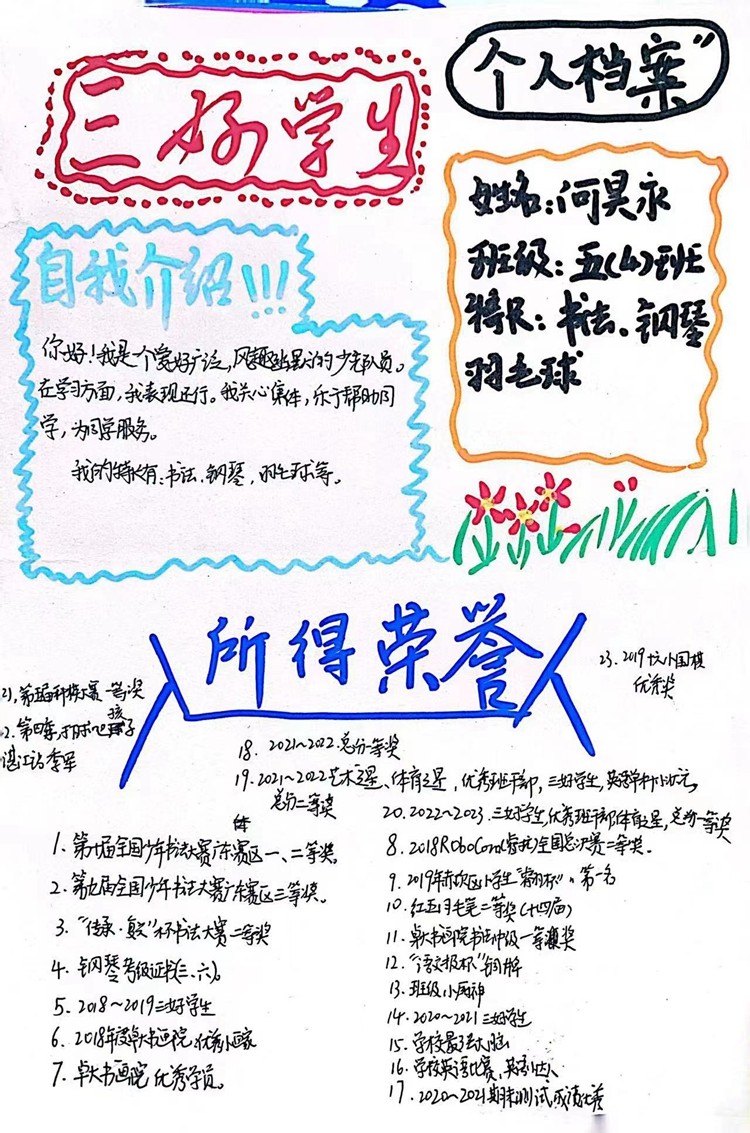 三好学生
个人档案"
姓名:何昊永
班级:五(4)班
特长:书法、钢琴
羽毛球
自我介绍!!!
你好!我是一个爱好广泛,风趣幽默的少先队员。
在学习方面,我表现还行。我关心集体,乐于帮助同
学,为同学服务。
我的特长有:书法、钢琴,羽毛球等。
所得荣誉
21,第五届科技大赛一等奖
孩子
湛江站季军
23.2019
围棋
优秀奖
18.2021~2022总分一等奖
19.2021~2022艺术之星、体育之星,优秀班干部,三好学生,英语单科状元,
总分二等奖
20.2022~2023.三好学生,优秀班干部体育之星,总分一等奖
1.第十届全国少年书法大赛广东赛区一、二等奖。
2.第九届全国少年书法大赛广东赛区三等奖。
3.“传承·
”杯书法大赛二等奖
4.钢琴考级证书(三、六)。
5.2018~2019三好学生
6.2018年度卓大书画院优秀小画家
7.卓大书画院优秀学员。
8.2018RoboCom(睿抗)全国总决赛二等奖。
9.2019年赤坎区小学生
杯”第一名
10.红五月毛笔二等奖(十四届)
11.卓大书画院书法中级一等奖
12.“语文报杯”铜牌
13.班级小
神
14.2020~2021三好学生
15.学校最强大脑
16.学校英语比赛,英语达人
17.2020~2021期末测试成绩优秀